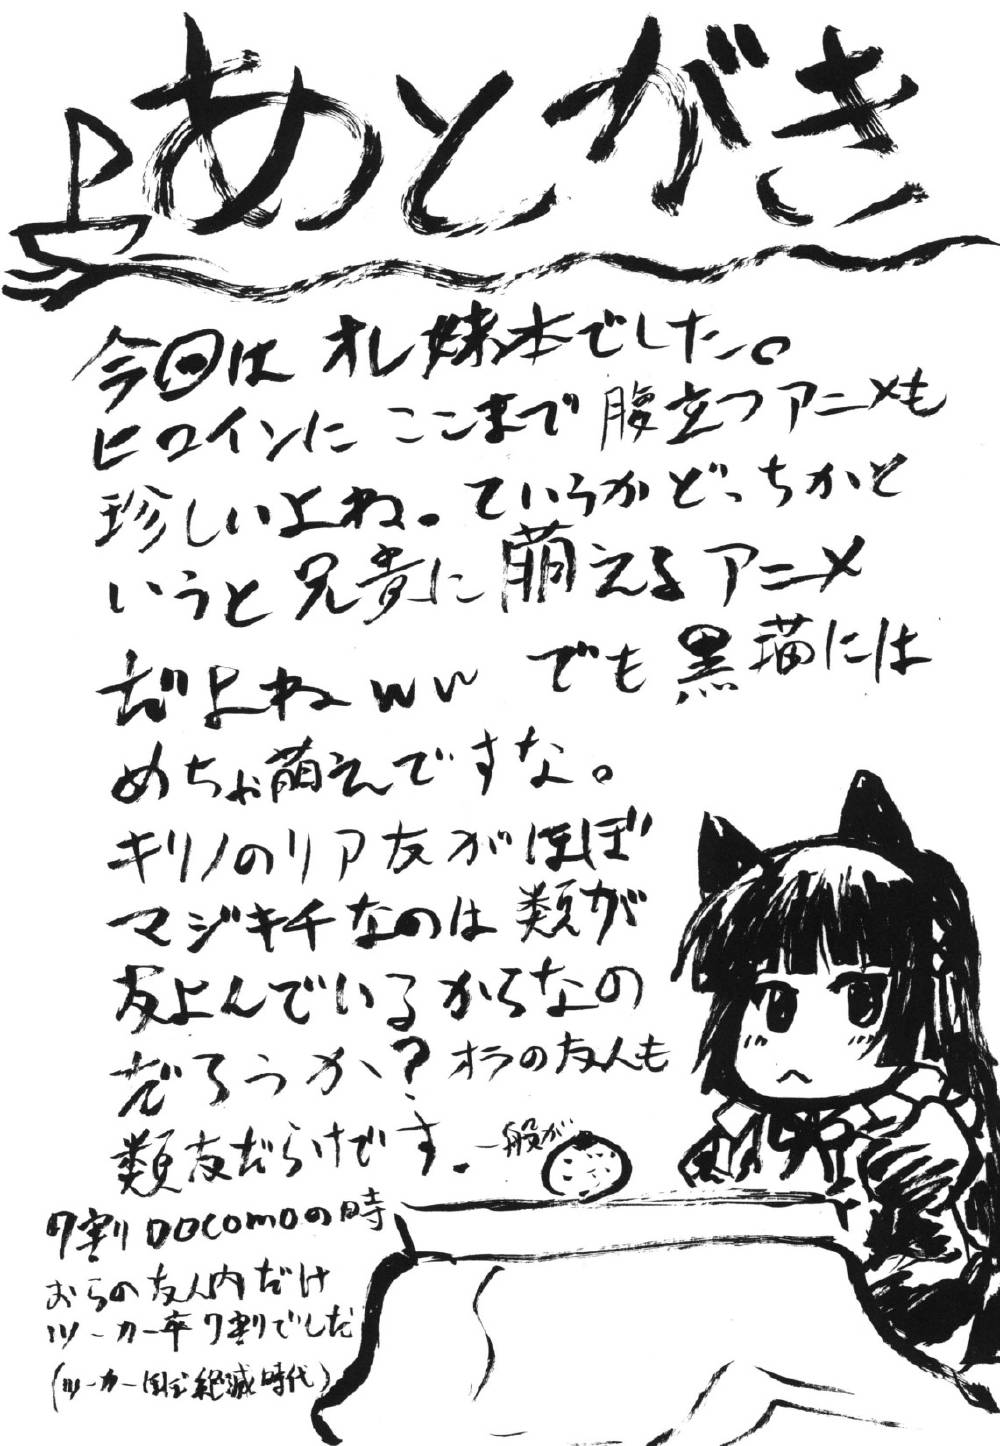 あとがき
今回は オレ妹本でした。
ヒロインに ここまで 腹立つアニメも
珍しいよね。ていうかどっちかと
いうと 兄貴に 萌えるアニメ
だよねww でも 黒猫には
めちゃ萌えですな。
キリノのリア友がほぼ
マジキチなのは 類が
友よんでいるからなの
だろうか? オラの友人も
類友だらけです。一般が
7割DOCOMOの時
おらの友人内だけ
ツーカー率7割でした
(ツーカー 絶滅時代)